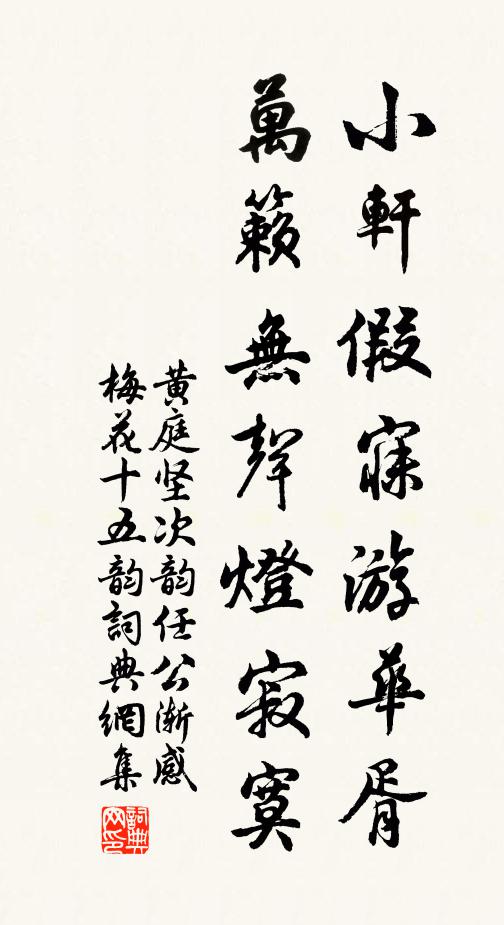 小軒假寐游華胥
萬籟無聲燈寂寞
黄庭坚次韵任公渐感
梅花十五韵詞典網集
詞典网印